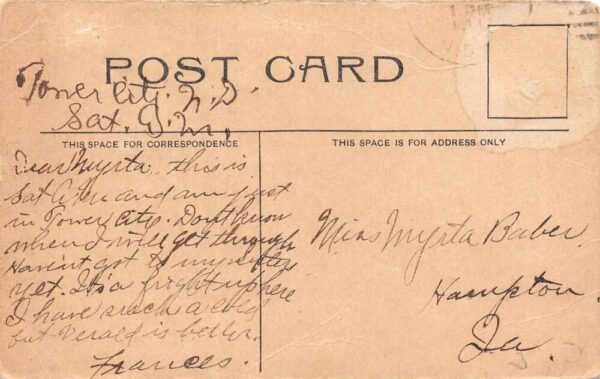 POST CARD
Tower City. N. D.
Sat. A. M.
THIS SPACE FOR CORRESPONDENCE
THIS SPACE IS FOR ADDRESS ONLY
Dear Myrta: this is
Sat A.M and am just
in Tower City. Don't know
when I will get through
Haven't got to my sisters
yet. It's a fright up here
I have such a cold
but Verald is better.
Frances.
Miss Myrta Baber.
Hampton.
Ia.